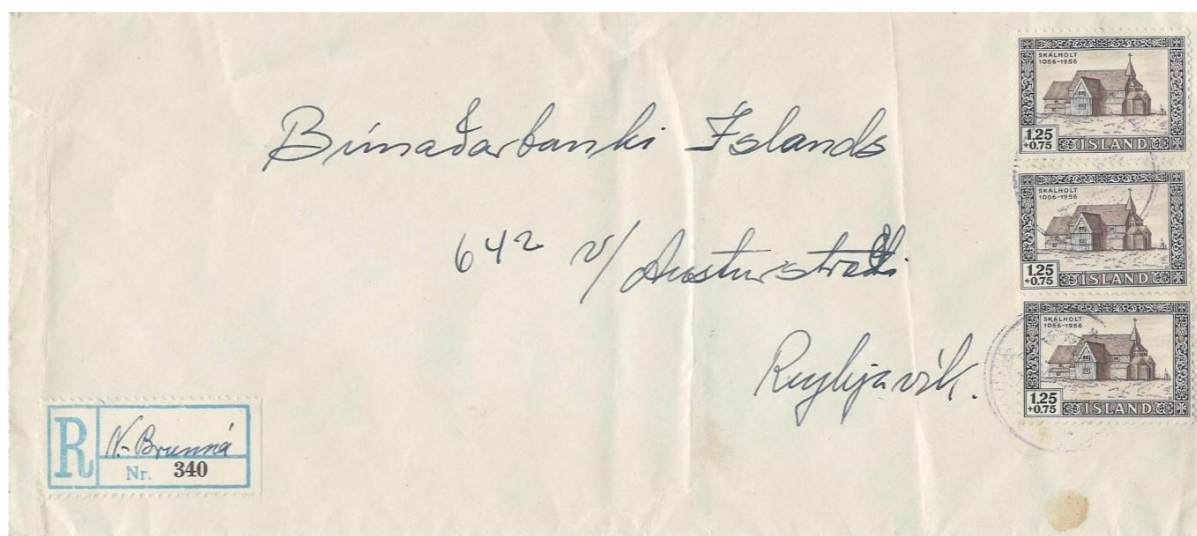 Búnaðarbanki Íslands
642 v/ Austurstræti
Reykjavík.
R
N-Brunná
Nr. 340
SKÁLHOLT
1056-1956
1.25
+0.75
ÍSLAND
SKÁLHOLT
1056-1956
1.25
+0.75
ÍSLAND
SKÁLHOLT
1056-1956
1.25
+0.75
ÍSLAND